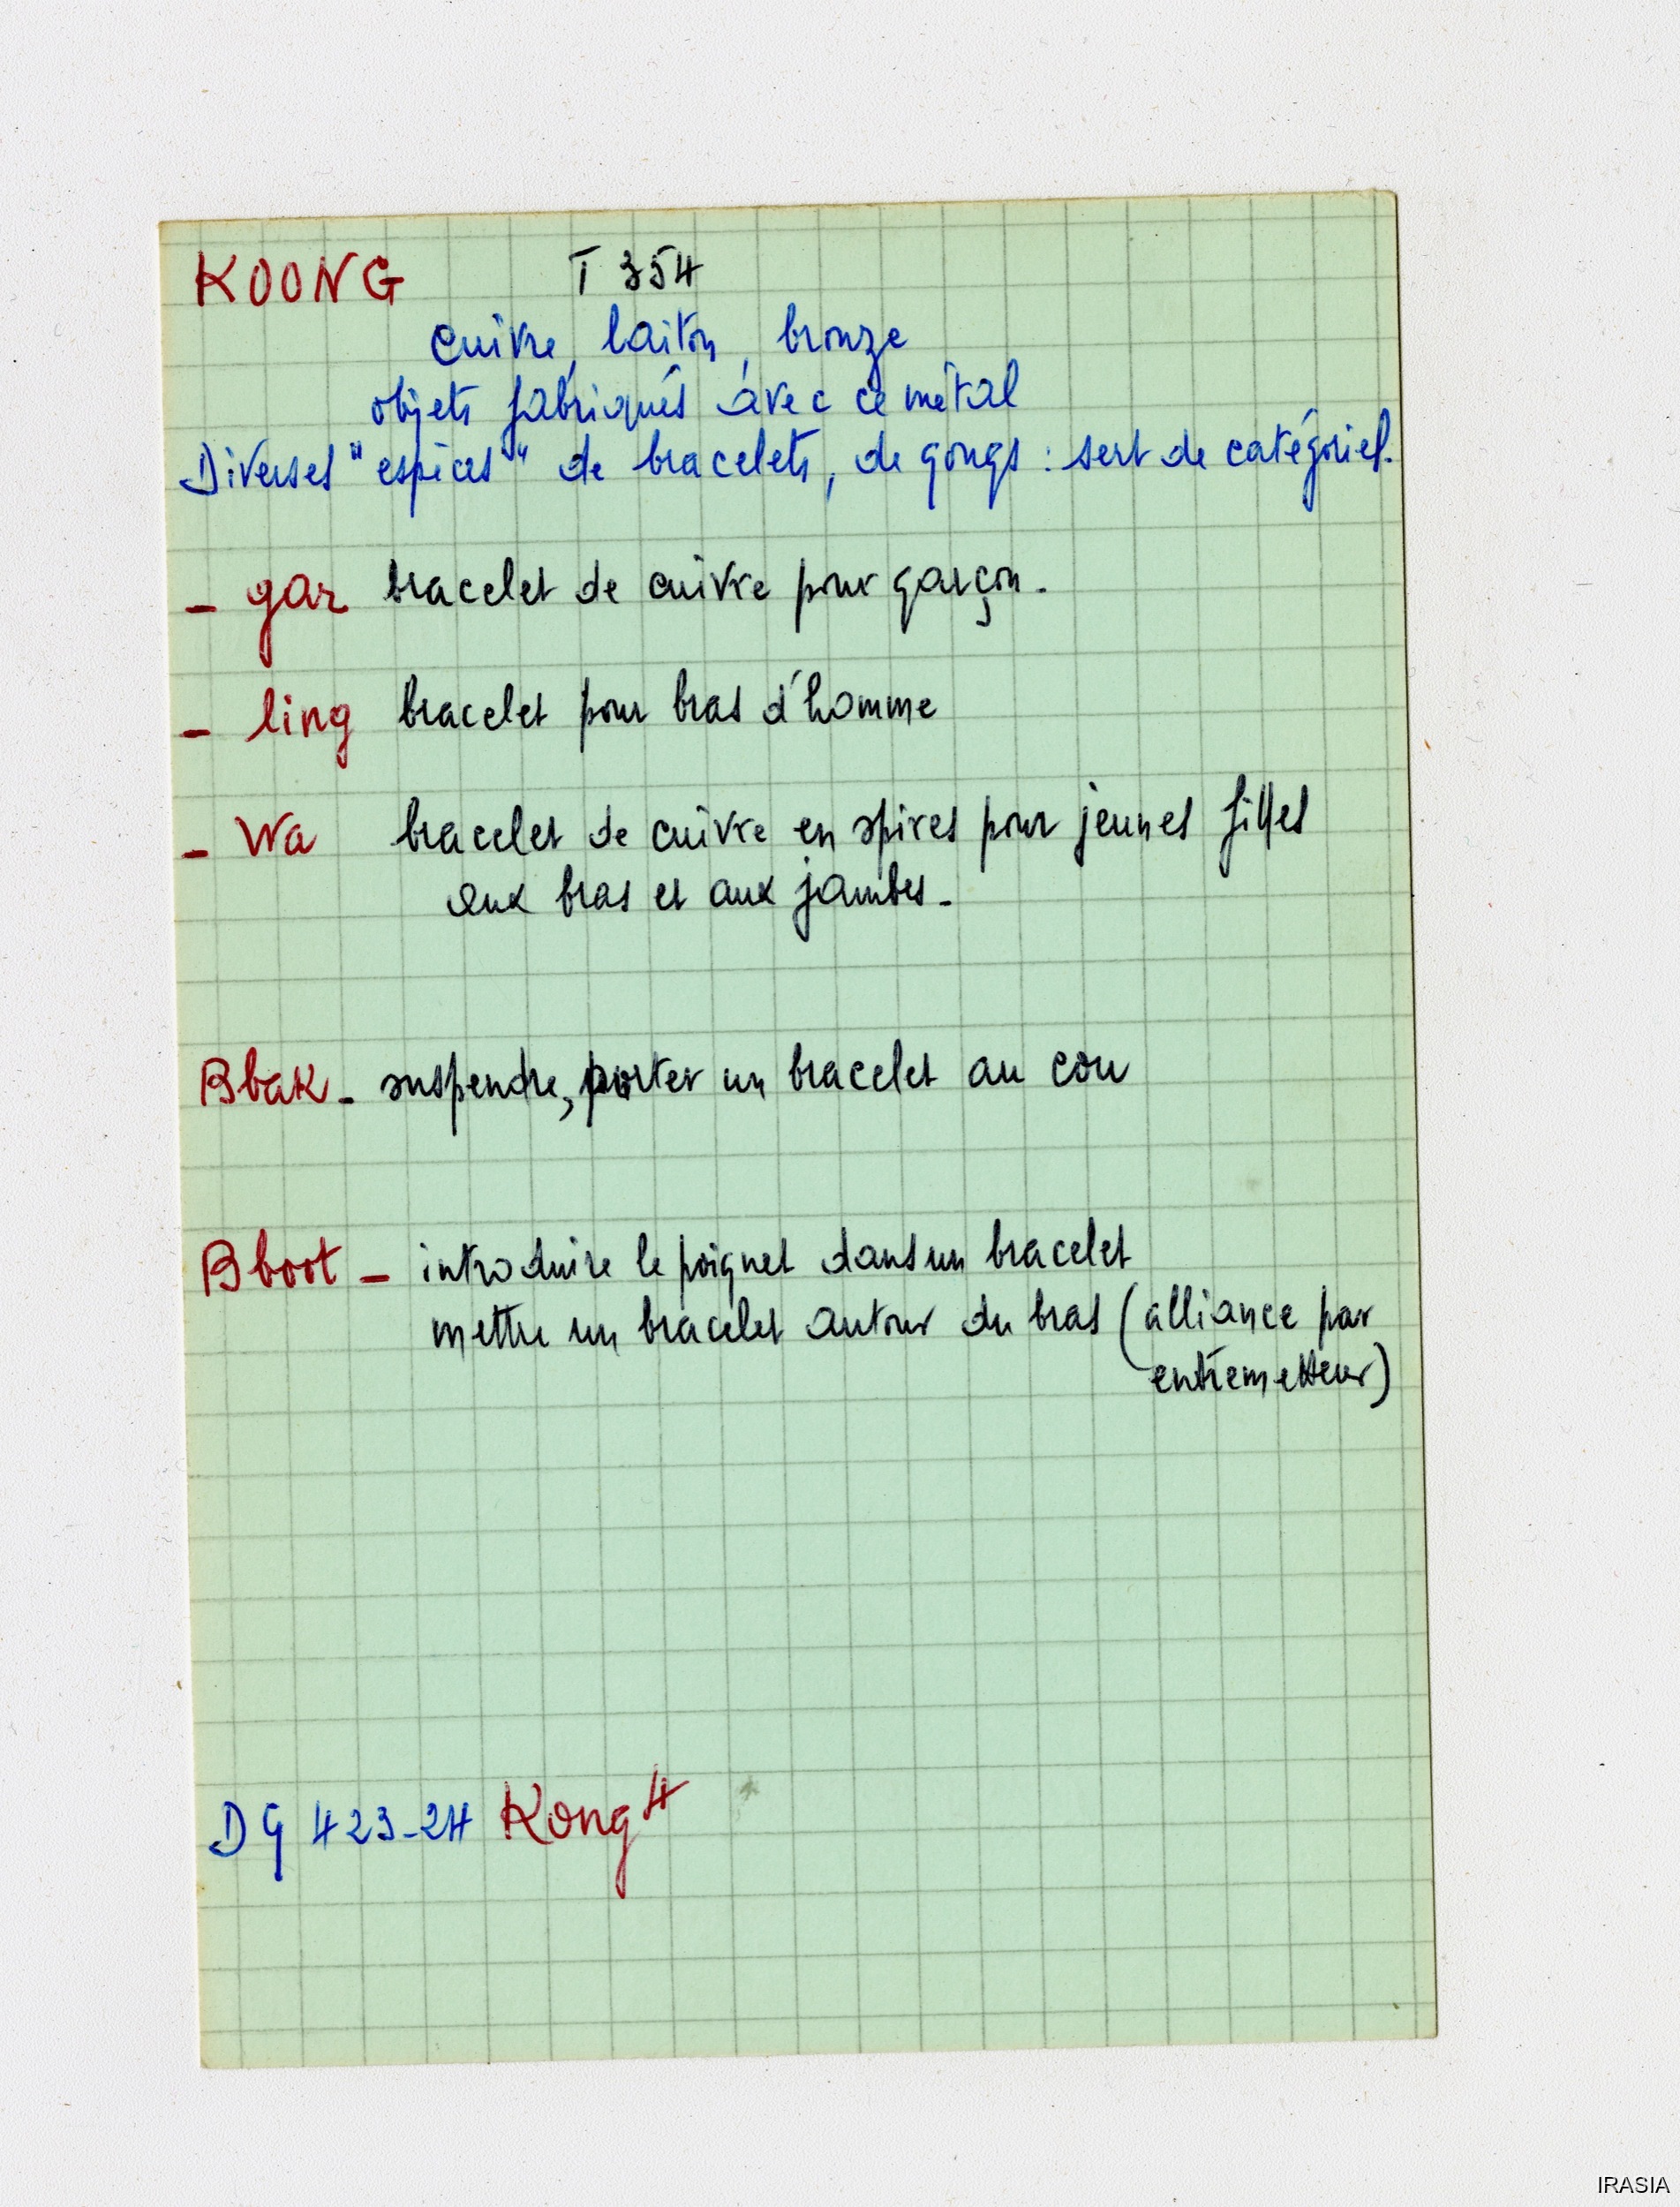 KOONG T 354
cuivre, laiton, bronze
objets fabriqués avec ce métal
Diverses "espèces" de bracelets, de gongs : sert de catégoriel.
- gar bracelet de cuivre pour garçon.
- ling bracelet pour bras d'homme
- Wa bracelet de cuivre en spires pour jeunes filles
aux bras et aux jambes -
Bbak - suspendre, porter un bracelet au cou
Bboot - introduire le poignet dans un bracelet
mettre un bracelet autour du bras (alliance par
entremetteur)
DG 423-24 Kong 4
IRASIA